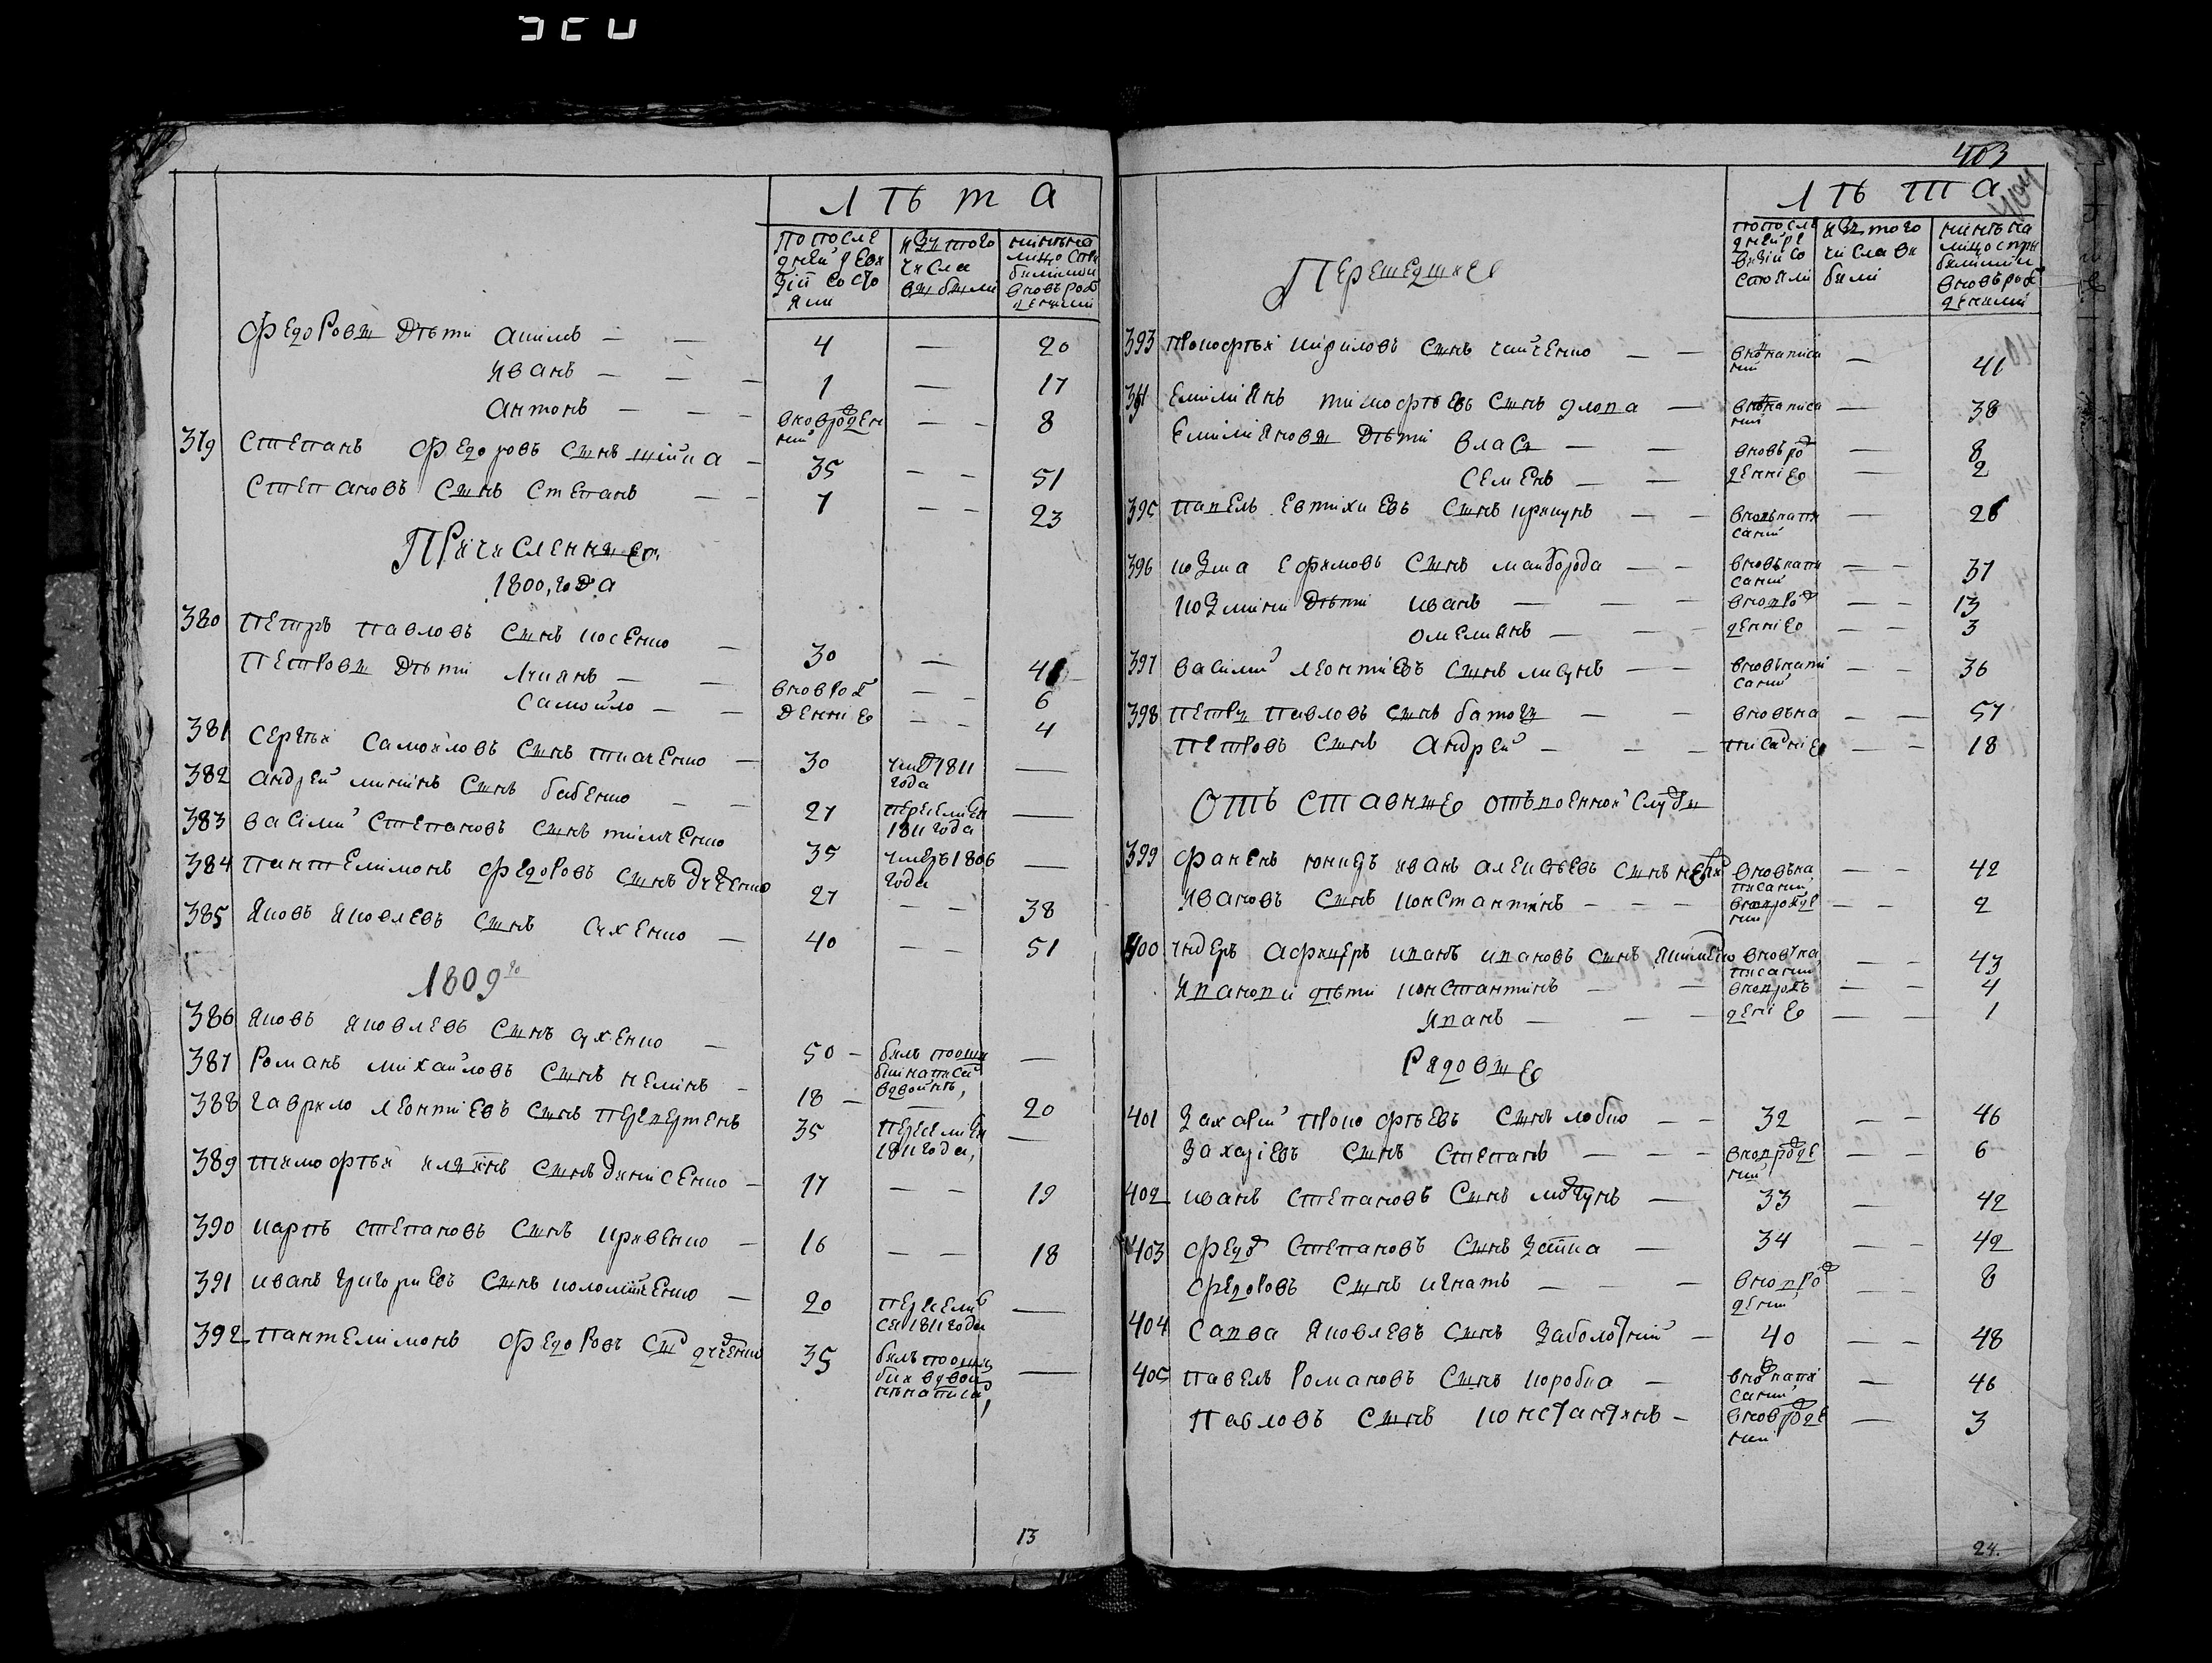 Лѣта
по после
дней реви
зіи состо
яли
изъ того
числа
выбыли
нинѣ на
лицо с при
былими и
вновь рож
деними
Федоровы дѣти Акимъ — — 4 — 20
Иванъ — — — 1 — 17
Антонъ — — — вновьрожден
ний — — 8
379 Степанъ Федоровъ сынъ — 35 — — 51
Степановъ сынъ Степанъ — — 7 — — 23
Причисленные
1800, года
380 Петръ Павловъ сынъ Косенко — 30 — 41
Петровы дѣти Лукянъ — — вноврож — — 6
Самойло — — денніе — — 4
381 Сергѣй Самойловъ сынъ Ткаченко — 30 умер 1811
года —
382 Андрей Мининъ сынъ Бабенко — — 27 переселен
1811 года —
383 Василий Степановъ сынъ Тимченко 35 умеръ 1806
года —
384 Пантелимонъ Федоровъ сынъ Дудченко 27 — — 38
385 Яковъ Яковлевъ сынъ Сухенко — 40 — — 51
1809го
386 Яковъ Яковлевъ сынъ Сухенко — 50 — билъ по оши
бки написан
вдвойнѣ, —
387 Романъ Михайловъ сынъ Келинъ — 18 — — 20
388 Гаврило Леонтіевъ сынъ 35 переселен
1811 года, —
389 Тимофѣй Илинъ сынъ Динисенко — 17 — — 19
390 Карпъ Степановъ сынъ Кривенко — 16 — — 18
391 Иванъ Григориевъ сынъ Коломійченко — 20 переселил
ся 1811 года —
392 Пантелимонъ Федоровъ сын Дудченко 35 билъ по оши
бки вдвой
нѣ написан, —
13
403
404
Лѣта
по послѣ
дней ре
визіи со
стояли
изъ того
числа ви
били
нинѣ на
лицо с при
былими и
вновь рож
деними
Перешедшие
393 Прокофѣй Кириловъ сынъ Чайченко — — вновнаписа
ний — 41
394 Емилиянъ Тимофѣевъ сынъ Длопа — вновнаписа
ний — 38
Емилиановы дѣти Власъ — — вновь рож — 8
Семенъ — — денніе — 2
395 Павелъ Евтихиевъ сынъ Крикунъ — — вновьнапи
саний — 26
396 Козма Ефимовъ сынъ Майборода — — вновьнапи
саний — — 37
Козмини дѣти Иванъ — — — вноврож — — 13
Омелиянъ — — — денніе — — 3
397 Василий Леонтіевъ сынъ Лисунъ — — вновьнапи
саний — — 36
398 Петръ Павловъ сынъ Батогъ — — вновьна — — 57
Петровъ сынъ Андрей — — — писанніе — — 18
Отъ ставные отъ военной служби
399 Фаненъ юнкеръ Иванъ Алексѣевъ сынъ вновьна
писаний — — 42
Ивановъ сынъ Константинъ — — — вноврожде
ний — — 2
400 ундеръ Афицеръ Иванъ Ивановъ сынъ Якименко вновьна
писаний — — 43
Иванови дѣти Константинъ — — вноврож — — 4
Иванъ — — — дение — — 1
Рядовые
401 Захарий Прокофѣевъ сынъ Лобко — — 32 — — 46
Захаріевъ сынъ Степанъ — — — вноврожде
ний — — 6
402 Иванъ Степановъ сынъ — 33 — 42
403 Федор Степановъ сынъ Затка — 34 — — 42
Федоровъ сынъ Игнатъ — — — вноврож
дений — — 8
404 Савва Яковлевъ сынъ Заболотний — 40 — — 48
405 Павелъ Романовъ сынъ Коробка — вновнапи
саний — 46
Павловъ сынъ Константинъ — вноврожде
ний — 3
24.